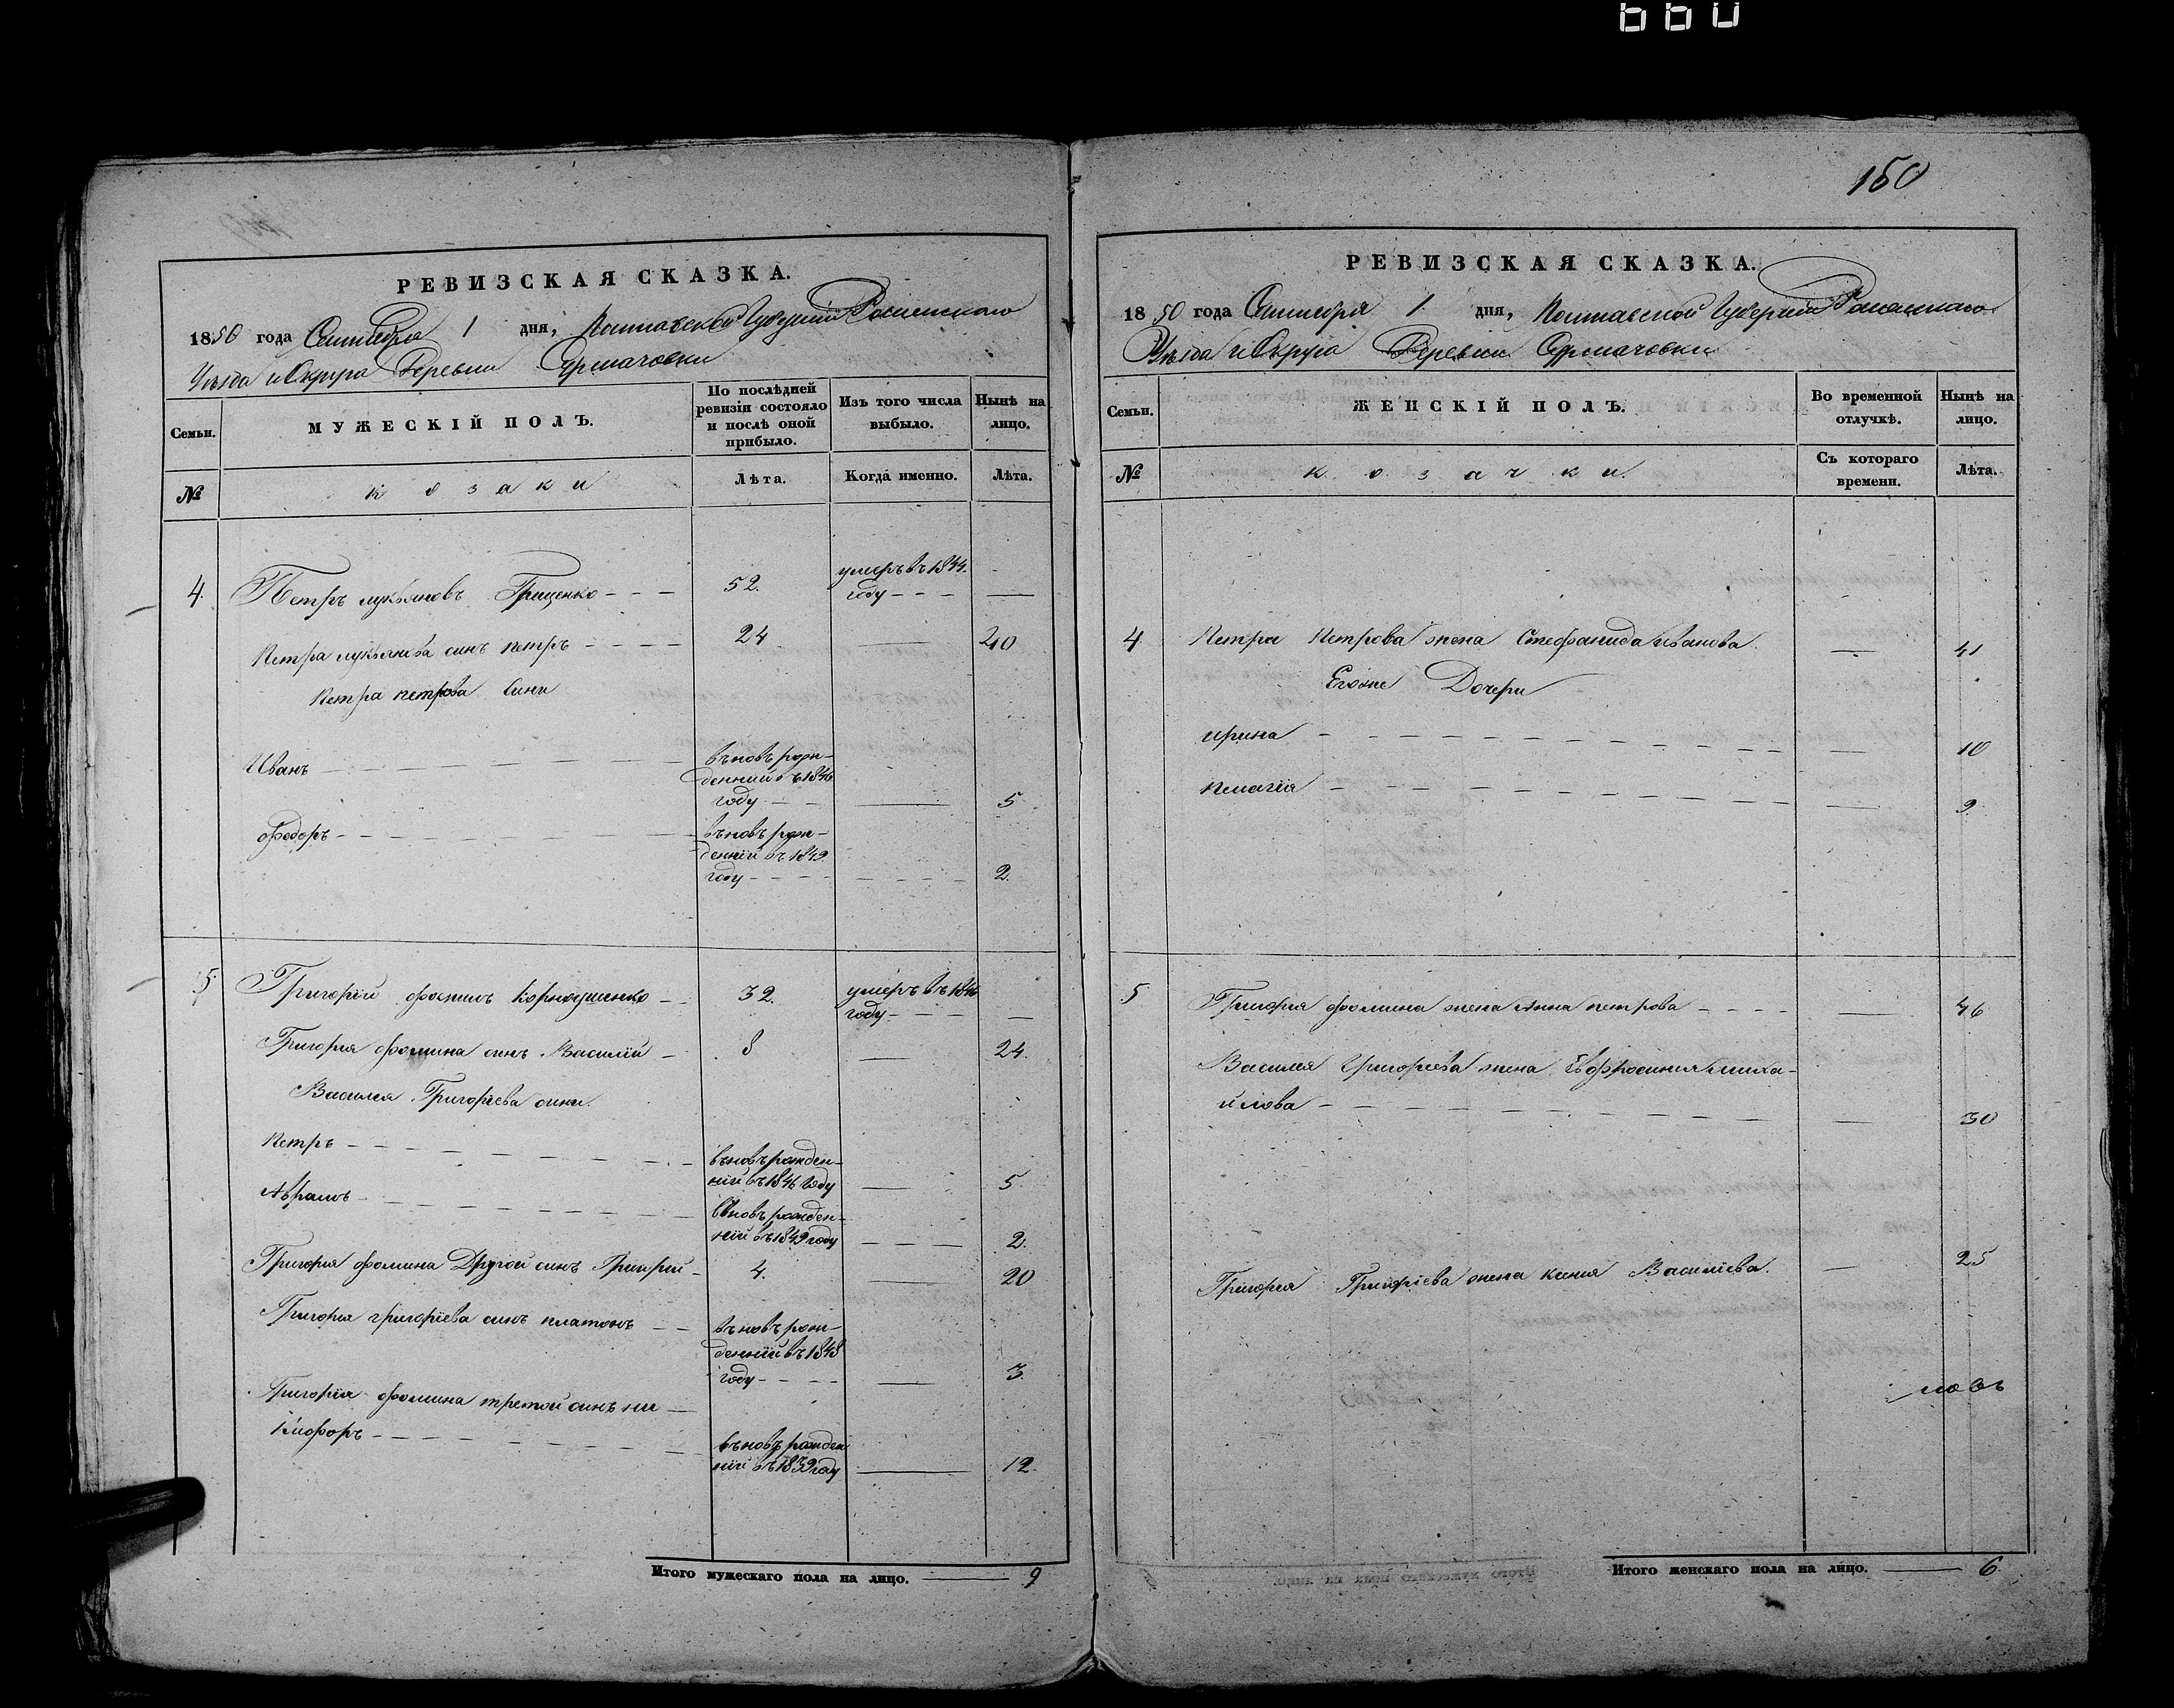 660
РЕВИЗСКАЯ СКАЗКА.
1850 года Сентября 1 дня, Полтавской Губернии Роменскаго
Уѣзда и Округа Деревни Ярмачовки
Семьи.
МУЖЕСКІЙ ПОЛЪ.
По послѣдней ревизіи состояло и послѣ оной прибыло.
Изъ того числа выбыло.
Нынѣ на лицо.
№
козаки
Лѣта.
Когда именно.
Лѣта.
4. Петръ лукьяновъ Гриценко - - - 52. умеръ въ 1844. году - - - —
Петра лукьянова синъ петръ - - - - 24 — 40
Петра петрова сини
Иванъ - - - - - - вновь рож-
денний въ 1846
году - - — 5
федоръ - - - - - - вновь рож-
денній въ 1849
году - - - - - - - - 2.
5 Григорій фоминъ 32. умеръ въ 1846
году - - - —
Григорія фомина синъ Василій - 8 — 24.
Василія Григоріева сини.
Петръ - - - - - - вновь рожден-
ній въ 1846 году — 5
Аврамъ - - - - - - вновь рожден-
ній въ 1849 году - - - - 2.
Григорія фомина Другой синъ Григорій - 4. — 20
Григорія григоріева синъ платонъ - - вновь рож-
денній въ 1848
году - - - - — 3.
Григорія фомина третой синъ ни —
кіфоръ - - - - - - вновь рожден
ній въ 1839 году — 12.
Итого мужескаго пола на лицо. — 9
150
РЕВИЗСКАЯ СКАЗКА.
1850 года Сентября 1. дня, Полтавской Губерніи Роменскаго
Уѣзда и Округа Деревни Ярмачовки
Семьи.
ЖЕНСКІЙ ПОЛЪ.
Во временной отлучкѣ.
Нынѣ на лицо.
№
козачки.
Съ котораго времени.
Лѣта.
4 Петра Петрова жена Стефанида иванова. — 41
Егоже Дочери
ирина - - - - - - — 10
пелагія - - - - - - — 9.
5 Григорія фомина жена Анна петрова - - - - — 46
Василія Григоріева жена Ефросинія миха-
йлова - - - - - - — 30
Григорія Григоріева жена ксенія Василіева. — 25
Итого женскаго пола на лицо. — 6.